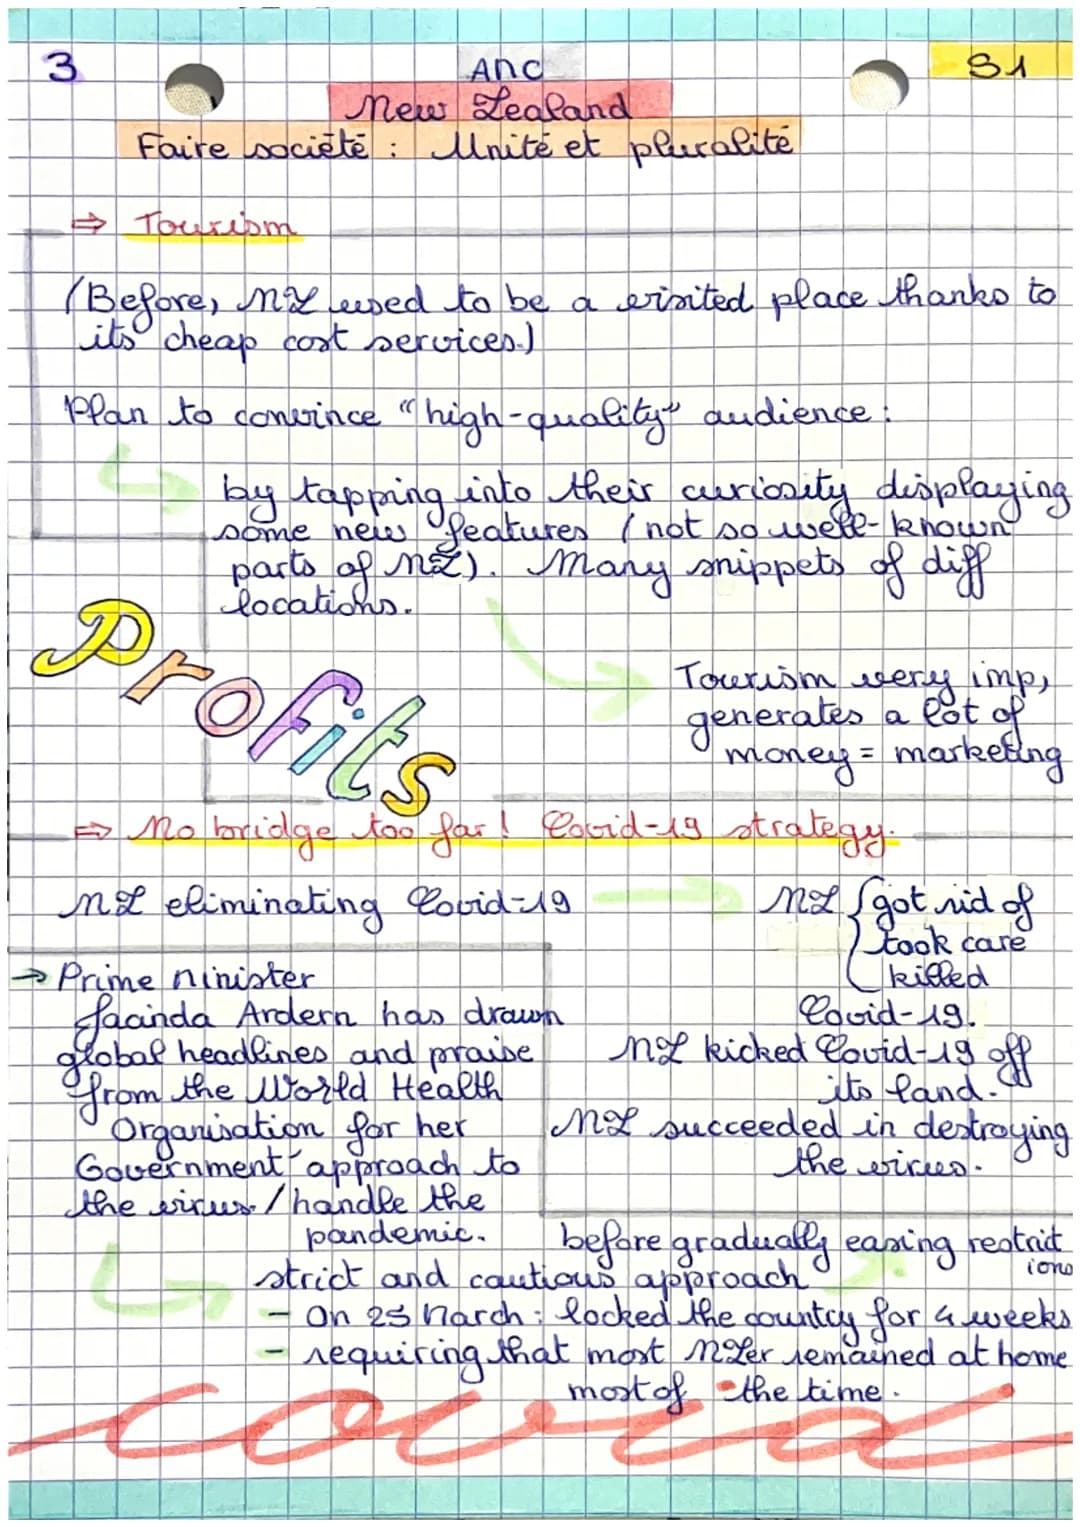 3
ANC
S1
New Zealand
Faire société : Unité et pluralité
⇒ Tourism
(Before, NZ used to be a visited place thanks to
its cheap cost services.)
Plan to convince "high-quality" audience :
by tapping into their curiosity displaying
some new features (not so well-known
parts of NZ). Many snippets of diff
locations.
Profits
Tourism very imp,
generates a lot of
money = marketing
⇒ No bridge too far! Covid-19 strategy.
NZ eliminating Covid-19
NZ { got rid of
took care
killed
Covid-19.
NZ kicked Covid-19 off
its land.
NZ succeeded in destroying
the virus.
→ Prime Minister
Jacinda Ardern has drawn
global headlines and praise
from the World Health
Organisation for her
Government approach to
the virus / handle the
pandemic.
before gradually easing restrict
ions
strict and cautious approach
- On 25 March : locked the country for 4 weeks
- requiring that most NZer remained at home
most of the time.
covid